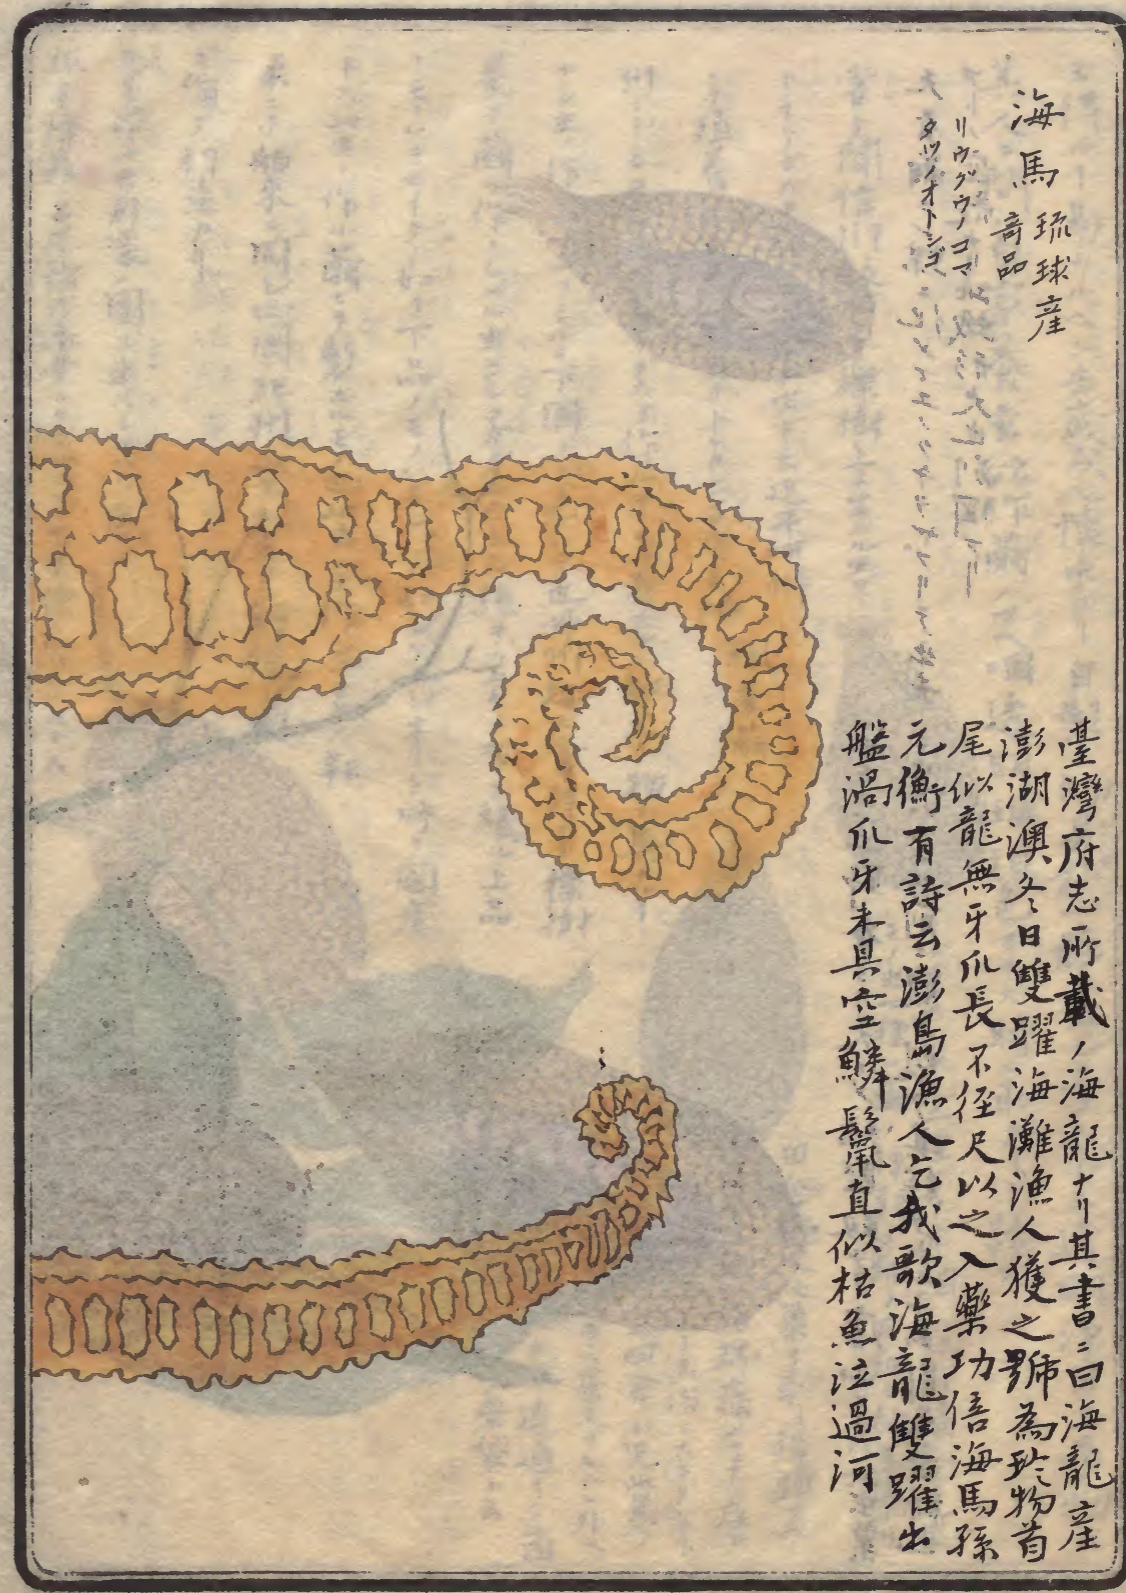 海馬
琉球産
奇品
リウグウノコマ
タツノオトシゴ
臺灣府志所載ノ海龍ナリ其書ニ曰海龍産
澎湖澳冬日雙躍海灘漁人獲之號為珍物首
尾似龍無牙爪長不徑尺以之入藥功倍海馬孫
元衡有詩云澎島漁人乞我歌海龍雙躍出
盤渦爪牙未具空鱗鬣直似枯魚泣過河